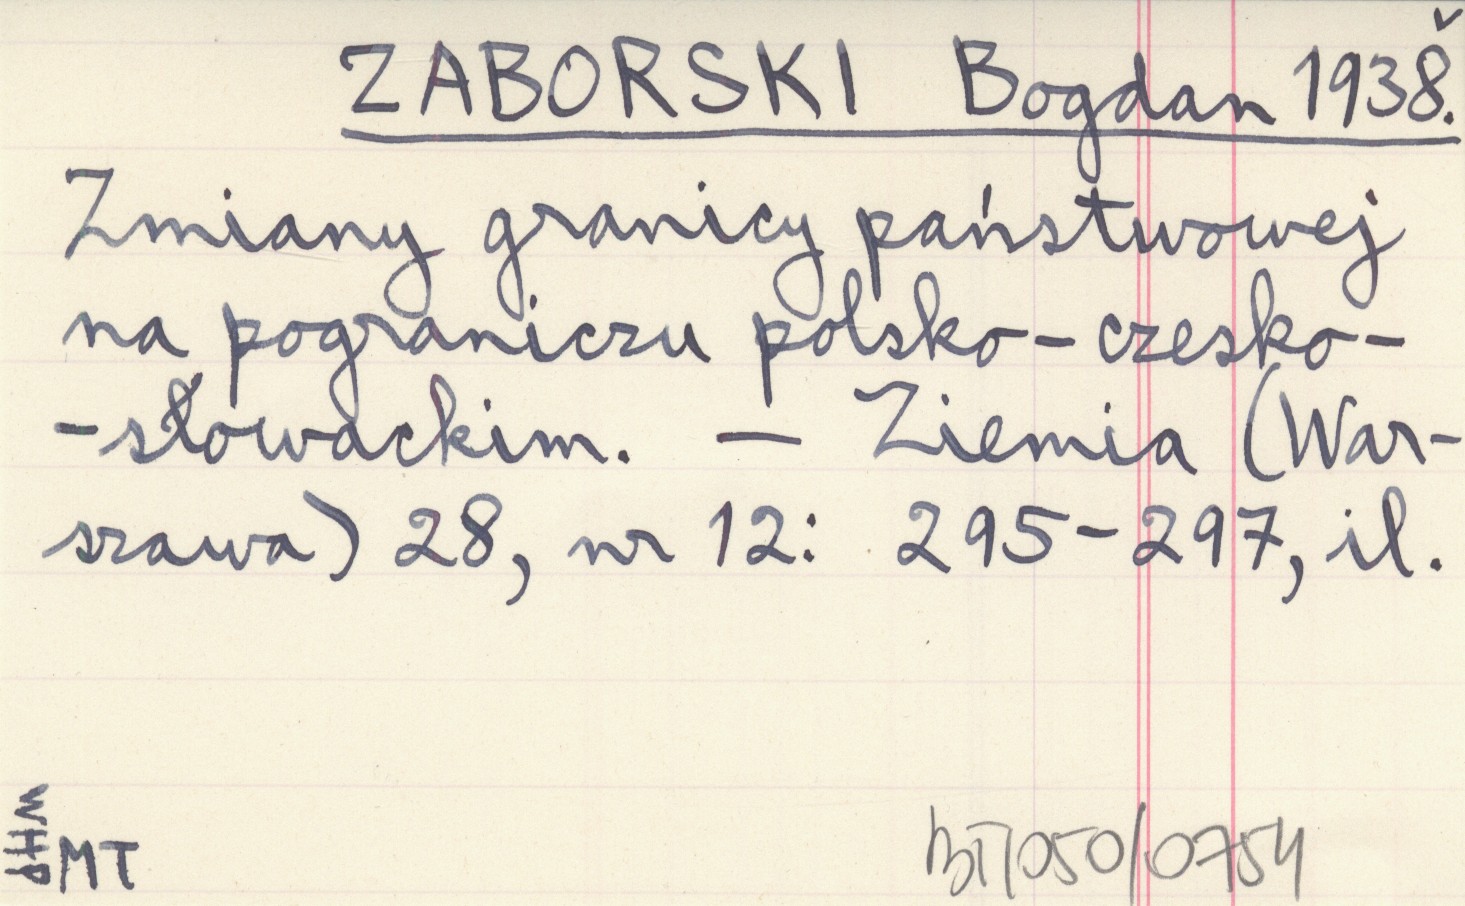 ZABORSKI Bogdan 1938.
Zmiany granicy państwowej
na pograniczu polsko-czesko-
-słowackim. — Ziemia (War-
szawa) 28, nr 12: 295-297, il.
WHP
MT
BT/050/0754